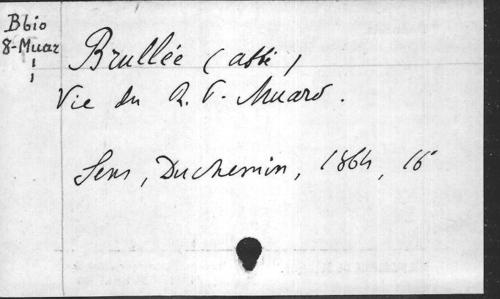 Bbio
8-Muar
Brullée (abbé)
Vie du R. P. Muard.
Sens, Duchemin, 1864, 16°